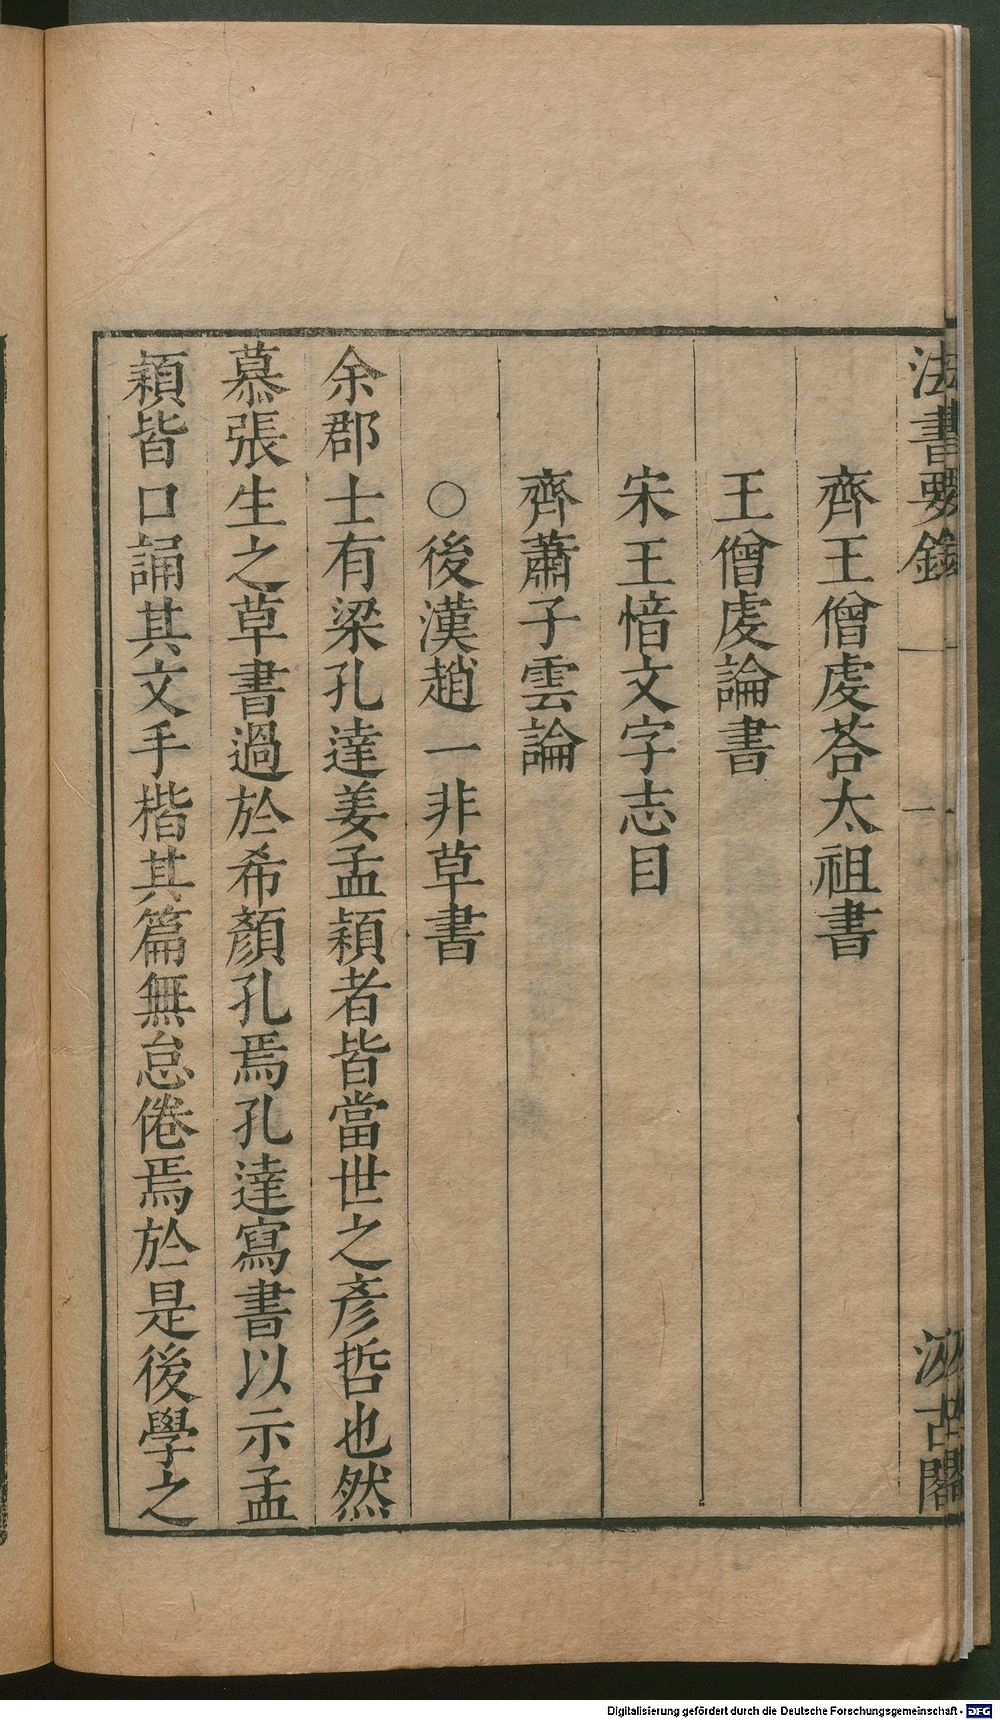 法書要錄 一 一 汲古閣
齊王僧虔荅太祖書
王僧虔論書
宋王愔文字志目
齊蕭子雲論
○後漢趙一非草書
余郡士有梁孔達姜孟穎者皆當世之彥哲也然
慕張生之草書過於希顏孔焉孔達寫書以示孟
穎皆口誦其文手楷其篇無怠倦焉於是後學之
Digitalisierung gefördert durch die Deutsche Forschungsgemeinschaft - DFG